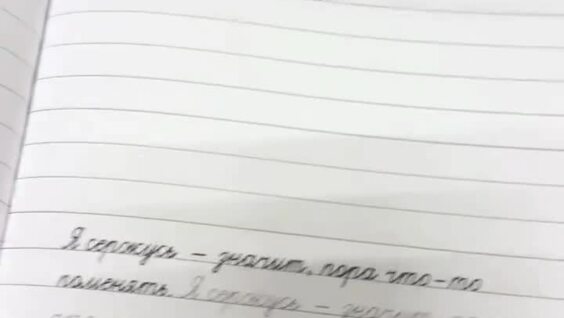 Я сержусь – значит, пора что-то
поменять. Я сержусь – значит